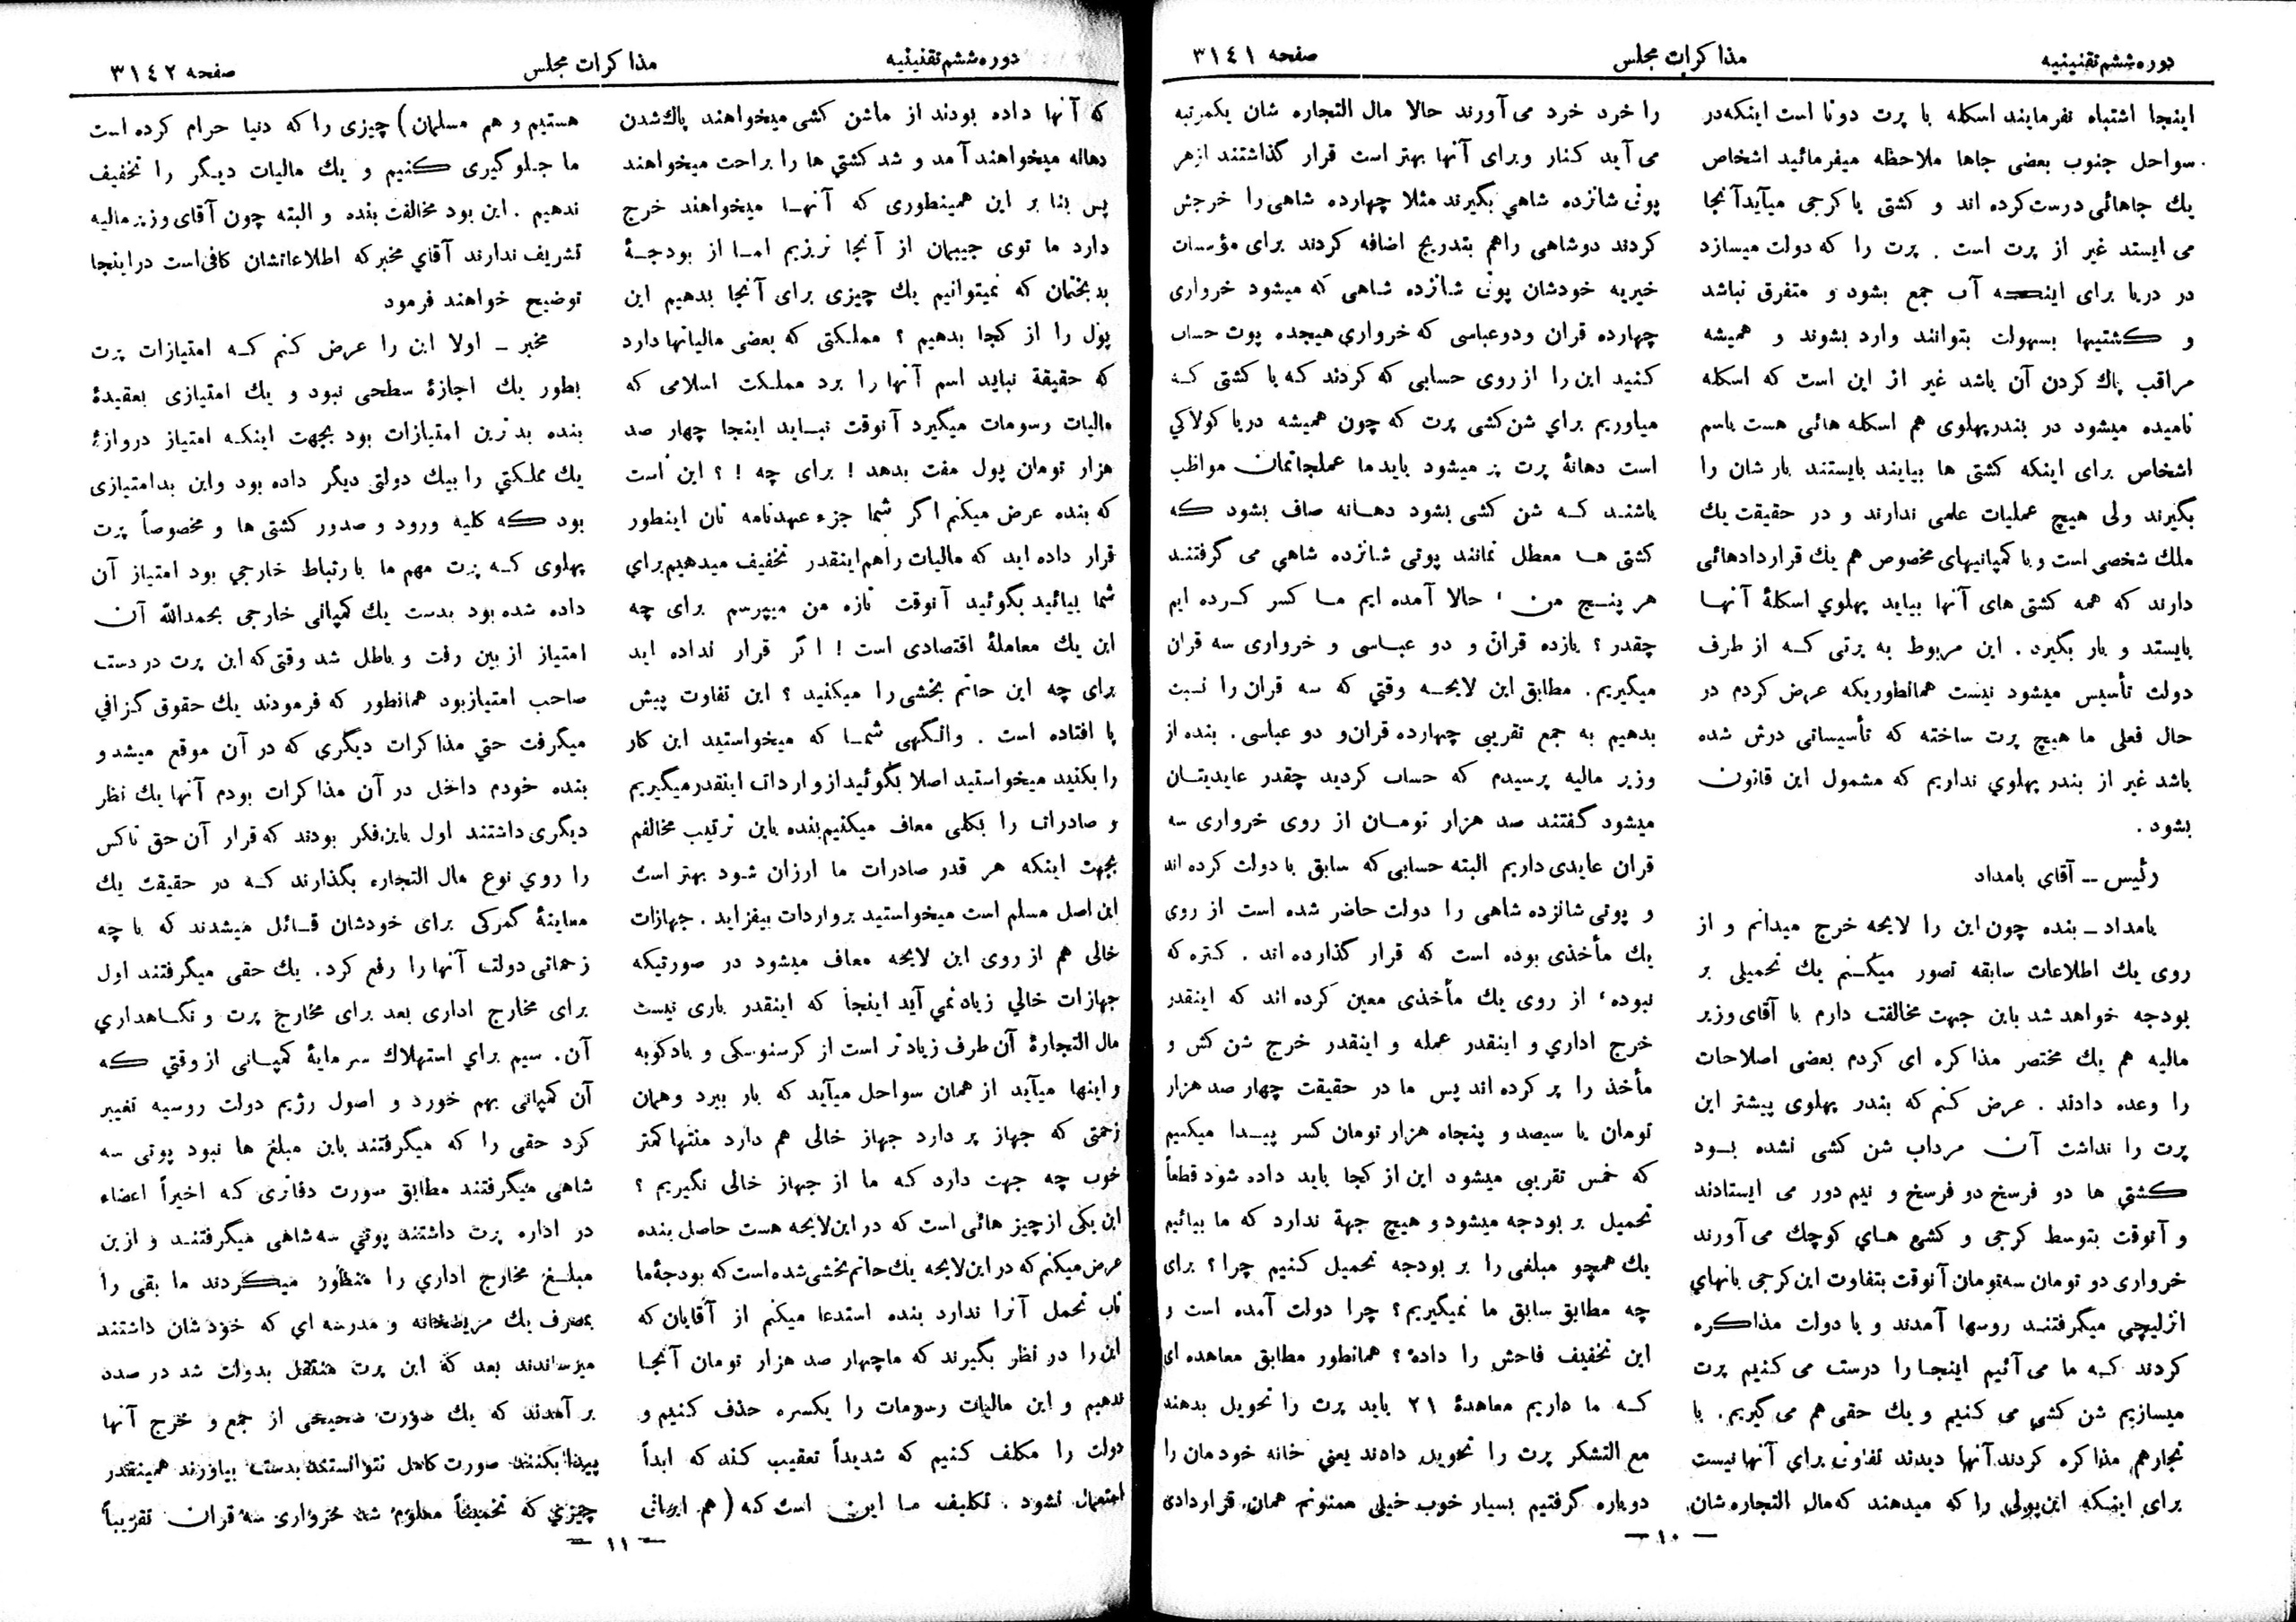 دوره ششم تقنینیه
مذاکرات مجلس
صفحه ۳۱٤۱
اینجا اشتباه نفرمایند اسکله با پرت دوتا است اینکه در
سواحل جنوب بعضی جاها ملاحظه میفرمائید اشخاص
یك جاهائی درست کرده اند و کشتی یا کرجی میآید آنجا
می ایستد غیر از پرت است . پرت را که دولت میسازد
در دریا برای اینکه آب جمع بشود و متفرق نباشد
و کشتیها بسهولت بتوانند وارد بشوند و همیشه
مراقب پاك کردن آن باشد غیر از این است که اسکله
نامیده میشود در بندر پهلوی هم اسکله هائی هست باسم
اشخاص برای اینکه کشتی ها بیایند بایستند بارشان را
بگیرند ولی هیچ عملیات علمی ندارند و در حقیقت یك
ملك شخصی است و با کمپانیهای مخصوص هم یك قراردادهائی
دارند که همه کشتی های آنها بیاید پهلوي اسکلهٔ آنها
بایستد و بار بگیرد . این مربوط به پرتی که از طرف
دولت تأسیس میشود نیست همانطوریکه عرض کردم در
حال فعلی ما هیچ پرت ساخته که تأسیساتی درش شده
باشد غیر از بندر پهلوي نداریم که مشمول این قانون
بشود .
رئیس – آقاي یامداد
یامداد – بنده چون این را لایحه خرج میدانم و از
روی یك اطلاعات سابقه تصور میکنم یك تحمیلی بر
بودجه خواهد شد باین جهت مخالفت دارم با آقای وزیر
مالیه هم یك مختصر مذاکره ای کردم بعضی اصلاحات
را وعده دادند . عرض کنم که بندر پهلوی پیشتر این
پرت را نداشت آن مرداب شن کشی نشده بود
کشتي ها دو فرسخ دو فرسخ و نیم دور می ایستادند
و آنوقت بتوسط کرجی و کشتی هاي کوچك می آورند
خرواری دو تومان سه تومان آنوقت بتفاوت این کرجی بانهاي
انزلیچی میگرفتند روسها آمدند و با دولت مذاکره
کردند که ما می آئیم اینجا را درست می کنیم پرت
میسازیم شن کشي می کنیم و یك حقی هم می گیریم . با
تجار هم مذاکره کردند آنها دیدند تفاوتی براي آنها نیست
برای اینکه این پولی را که میدهند که مال التجاره شان
را خرد خرد می آورند حالا مال التجاره شان یکمرتبه
می آید کنار و برای آنها بهتر است قرار گذاشتند از هر
پوتی شانزده شاهي بگیرند مثلا چهارده شاهی را خرجش
کردند دوشاهی راهم بتدریج اضافه کردند برای مؤسسات
خیریه خودشان پوتی شانزده شاهی که میشود خرواری
چهارده قران و دو عباسی که خرواري هیجده پوت حساب
کنید این را از روی حسابی که کردند که با کشتی که
میاوریم براي شن کشی پرت که چون همیشه دریا کولاکي
است دهانهٔ پرت پر میشود باید ما عملجاتمان مواظب
باشند که شن کشی بشود دهانه صاف بشود که
کشتی ها معطل نمانند پوتی شانزده شاهي می گرفتند
هر پنج من ، حالا آمده ایم ما کسر کرده ایم
چقدر ؟ یازده قران و دو عباسی و خرواری سه قران
میگیریم. مطابق این لایحه وقتي که سه قران را نسبت
بدهیم به جمع تقریبی چهارده قران و دو عباسی . بنده از
وزیر مالیه پرسیدم که حساب کردید چقدر عایدیتان
میشود گفتند صد هزار تومان از روی خرواری سه
قران عایدی داریم البته حسابی که سابق با دولت کرده اند
و پوتی شانزده شاهی را دولت حاضر شده است از روی
یك مأخذی بوده است که قرار گذارده اند . کتره که
نبوده ، از روی یك مأخذی معین کرده اند که اینقدر
خرج اداري و اینقدر عمله و اینقدر خرج شن کش و
مأخذ را پر کرده اند پس ما در حقیقت چهار صد هزار
تومان یا سیصد و پنجاه هزار تومان کسر پیدا میکنیم
که خمس تقریبی میشود این از کجا باید داده شود قطعاً
تحمیل بر بودجه میشود و هیچ جهة ندارد که ما بیائیم
یك همچو مبلغی را بر بودجه تحمیل کنیم چرا ؟ برای
چه مطابق سابق ما نمیگیریم ؟ چرا دولت آمده است و
این تخفیف فاحش را داده ؟ همانطور مطابق معاهده ای
که ما داریم معاهدهٔ ۲۱ باید پرت را تحویل بدهند
مع التشکر پرت را تحویل دادند یعني خانه خودمان را
دوباره گرفتیم بسیار خوب خیلی ممنونم همان قراردادی
— ۱۰ —
دوره ششم تقنینیه
مذاکرات مجلس
صفحه ۳۱٤۲
که آنها داده بودند از ماشن کشی میخواهند پاك شدن
دهانه میخواهند آمد و شد کشتي ها را براحت میخواهند
پس بنا بر این همینطوری که آنها میخواهند خرج
دارد ما توی جیبمان از آنجا نریزیم اما از بودجهٔ
بدبختمان که نمیتوانیم یك چیزی برای آنجا بدهیم این
پول را از کجا بدهیم ؟ مملکتی که بعضی مالیاتها دارد
که حقیقة نباید اسم آنها را برد مملکت اسلامی که
مالیات رسومات میگیرد آنوقت نباید اینجا چهار صد
هزار تومان پول مفت بدهد ! برای چه ! ؟ این است
که بنده عرض میکنم اگر شما جزء عهدنامه تان اینطور
قرار داده اید که مالیات راهم اینقدر تخفیف میدهیم براي
شما بیائید بگوئید آنوقت تازه من میپرسم برای چه
این یك معاملهٔ اقتصادی است ! اگر قرار نداده اید
برای چه این حاتم بخشی را میکنید ؟ این تفاوت پیش
پا افتاده است . وانگهی شما که میخواستید این کار
را بکنید میخواستید اصلا بگوئید از واردات اینقدر میگیریم
و صادرات را بکلی معاف میکنیم بنده باین ترتیب مخالفم
بجهت اینکه هر قدر صادرات ما ارزان شود بهتر است
این اصل مسلم است میخواستید بر واردات بیفزاید . جهازات
خالی هم از روی این لایحه معاف میشود در صورتیکه
جهازات خالي زیاد نمي آید اینجا که اینقدر باری نیست
مال التجارهٔ آن طرف زیاد تر است از کرسنوسکی و بادکوبه
و اینها میآید از همان سواحل میآید که بار ببرد و همان
زحمتی که جهاز پر دارد جهاز خالی هم دارد منتها کمتر
خوب چه جهت دارد که ما از جهاز خالی نگیریم ؟
این یکی از چیز هائی است که در این لایحه هست حاصل بنده
عرض میکنم که در این لایحه یك حاتم بخشی شده است که بودجهٔ ما
تاب تحمل آنرا ندارد بنده استدعا میکنم از آقایان که
این را در نظر بگیرند که ما چهار صد هزار تومان آنجا
ندهیم و این مالیات رسومات را یکسره حذف کنیم و
دولت را مکلف کنیم که شدیداً تعقیب کند که ابداً
استعمال نشود . تکلیف ما این است که ( هم ایرانی
هستیم و هم مسلمان ) چیزی را که دنیا حرام کرده است
ما جلوگیری کنیم و یك مالیات دیگر را تخفیف
ندهیم . این بود مخالفت بنده و البته چون آقای وزیر مالیه
تشریف ندارند آقاي مخبر که اطلاعاتشان کافی است در اینجا
توضیح خواهند فرمود
مخبر – اولا این را عرض کنم که امتیازات پرت
بطور یك اجازهٔ سطحی نبود و یك امتیازی بعقیدهٔ
بنده بدترین امتیازات بود بجهت اینکه امتیاز دروازهٔ
یك مملکتي را بیك دولتی دیگر داده بود و این بد امتیازی
بود که کلیه ورود و صدور کشتی ها و مخصوصاً پرت
پهلوی که پرت مهم ما با رتباط خارجي بود امتیاز آن
داده شده بود بدست یك کمپانی خارجی بحمدالله آن
امتیاز از بین رفت و باطل شد وقتی که این پرت در دست
صاحب امتیاز بود همانطور که فرمودند یك حقوق گزافي
میگرفت حتي مذاکرات دیگری که در آن موقع میشد و
بنده خودم داخل در آن مذاکرات بودم آنها یك نظر
دیگری داشتند اول باین فکر بودند که قرار آن حق تاکس
را روي نوع مال التجاره بگذارند که در حقیقت یك
معاینهٔ گمرکی برای خودشان قائل میشدند که با چه
زحماتی دولت آنها را رفع کرد . یك حقی میگرفتند اول
برای مخارج اداری بعد برای مخارج پرت و نگاهداري
آن . سیم براي استهلاك سرمایهٔ کمپانی از وقتي که
آن کمپانی بهم خورد و اصول رژیم دولت روسیه تغییر
کرد حقی را که میگرفتند باین مبلغ ها نبود پوتی سه
شاهی میگرفتند مطابق صورت دفاتری که اخیراً اعضاء
در اداره پرت داشتند پوتي سه شاهی میگرفتند و از این
مبلغ مخارج اداري را منظور میکردند ما بقی را
بمصرف یك مریضخانه و مدرسه اي که خودشان داشتند
میرساندند بعد که این پرت منتقل بدولت شد در صدد
بر آمدند که یك صورت صحیحی از جمع و خرج آنها
پیدا بکنند صورت کامل نتوانستند بدست بیاورند همینقدر
چیزی که تخمیناً معلوم شد خرواری سه قران تقریباً
— ۱۱ —